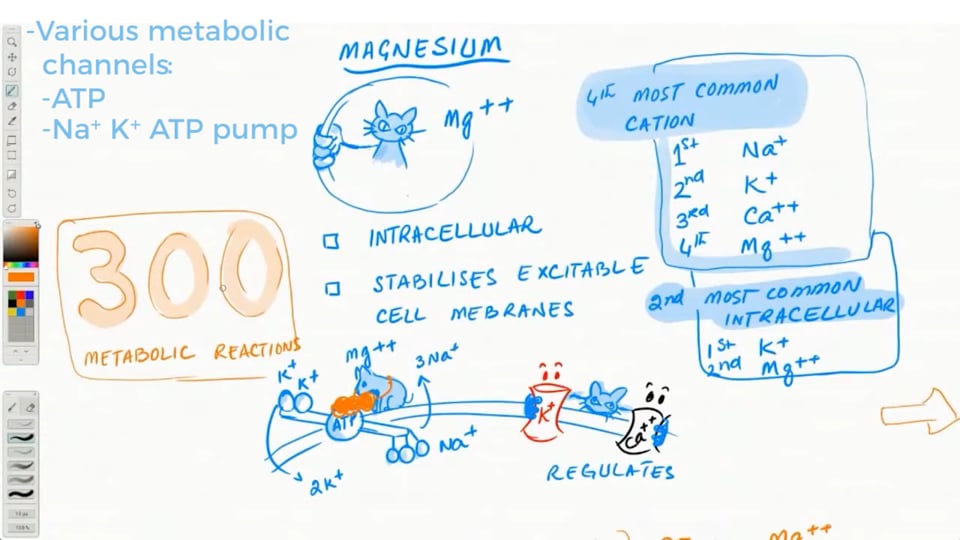 -Various metabolic
channels:
-ATP
-Na⁺ K⁺ ATP pump
MAGNESIUM
Mg++
4th MOST COMMON
CATION
1st Na+
2nd K+
3rd Ca++
4th Mg++
INTRACELLULAR
STABILISES EXCITABLE
CELL MEBRANES
2nd MOST COMMON
INTRACELLULAR
1st K+
2nd Mg++
300
METABOLIC REACTIONS
Mg++
3Na+
K+ K+
ATP
Na+
2K+
K+
Ca++
REGULATES
Mg++